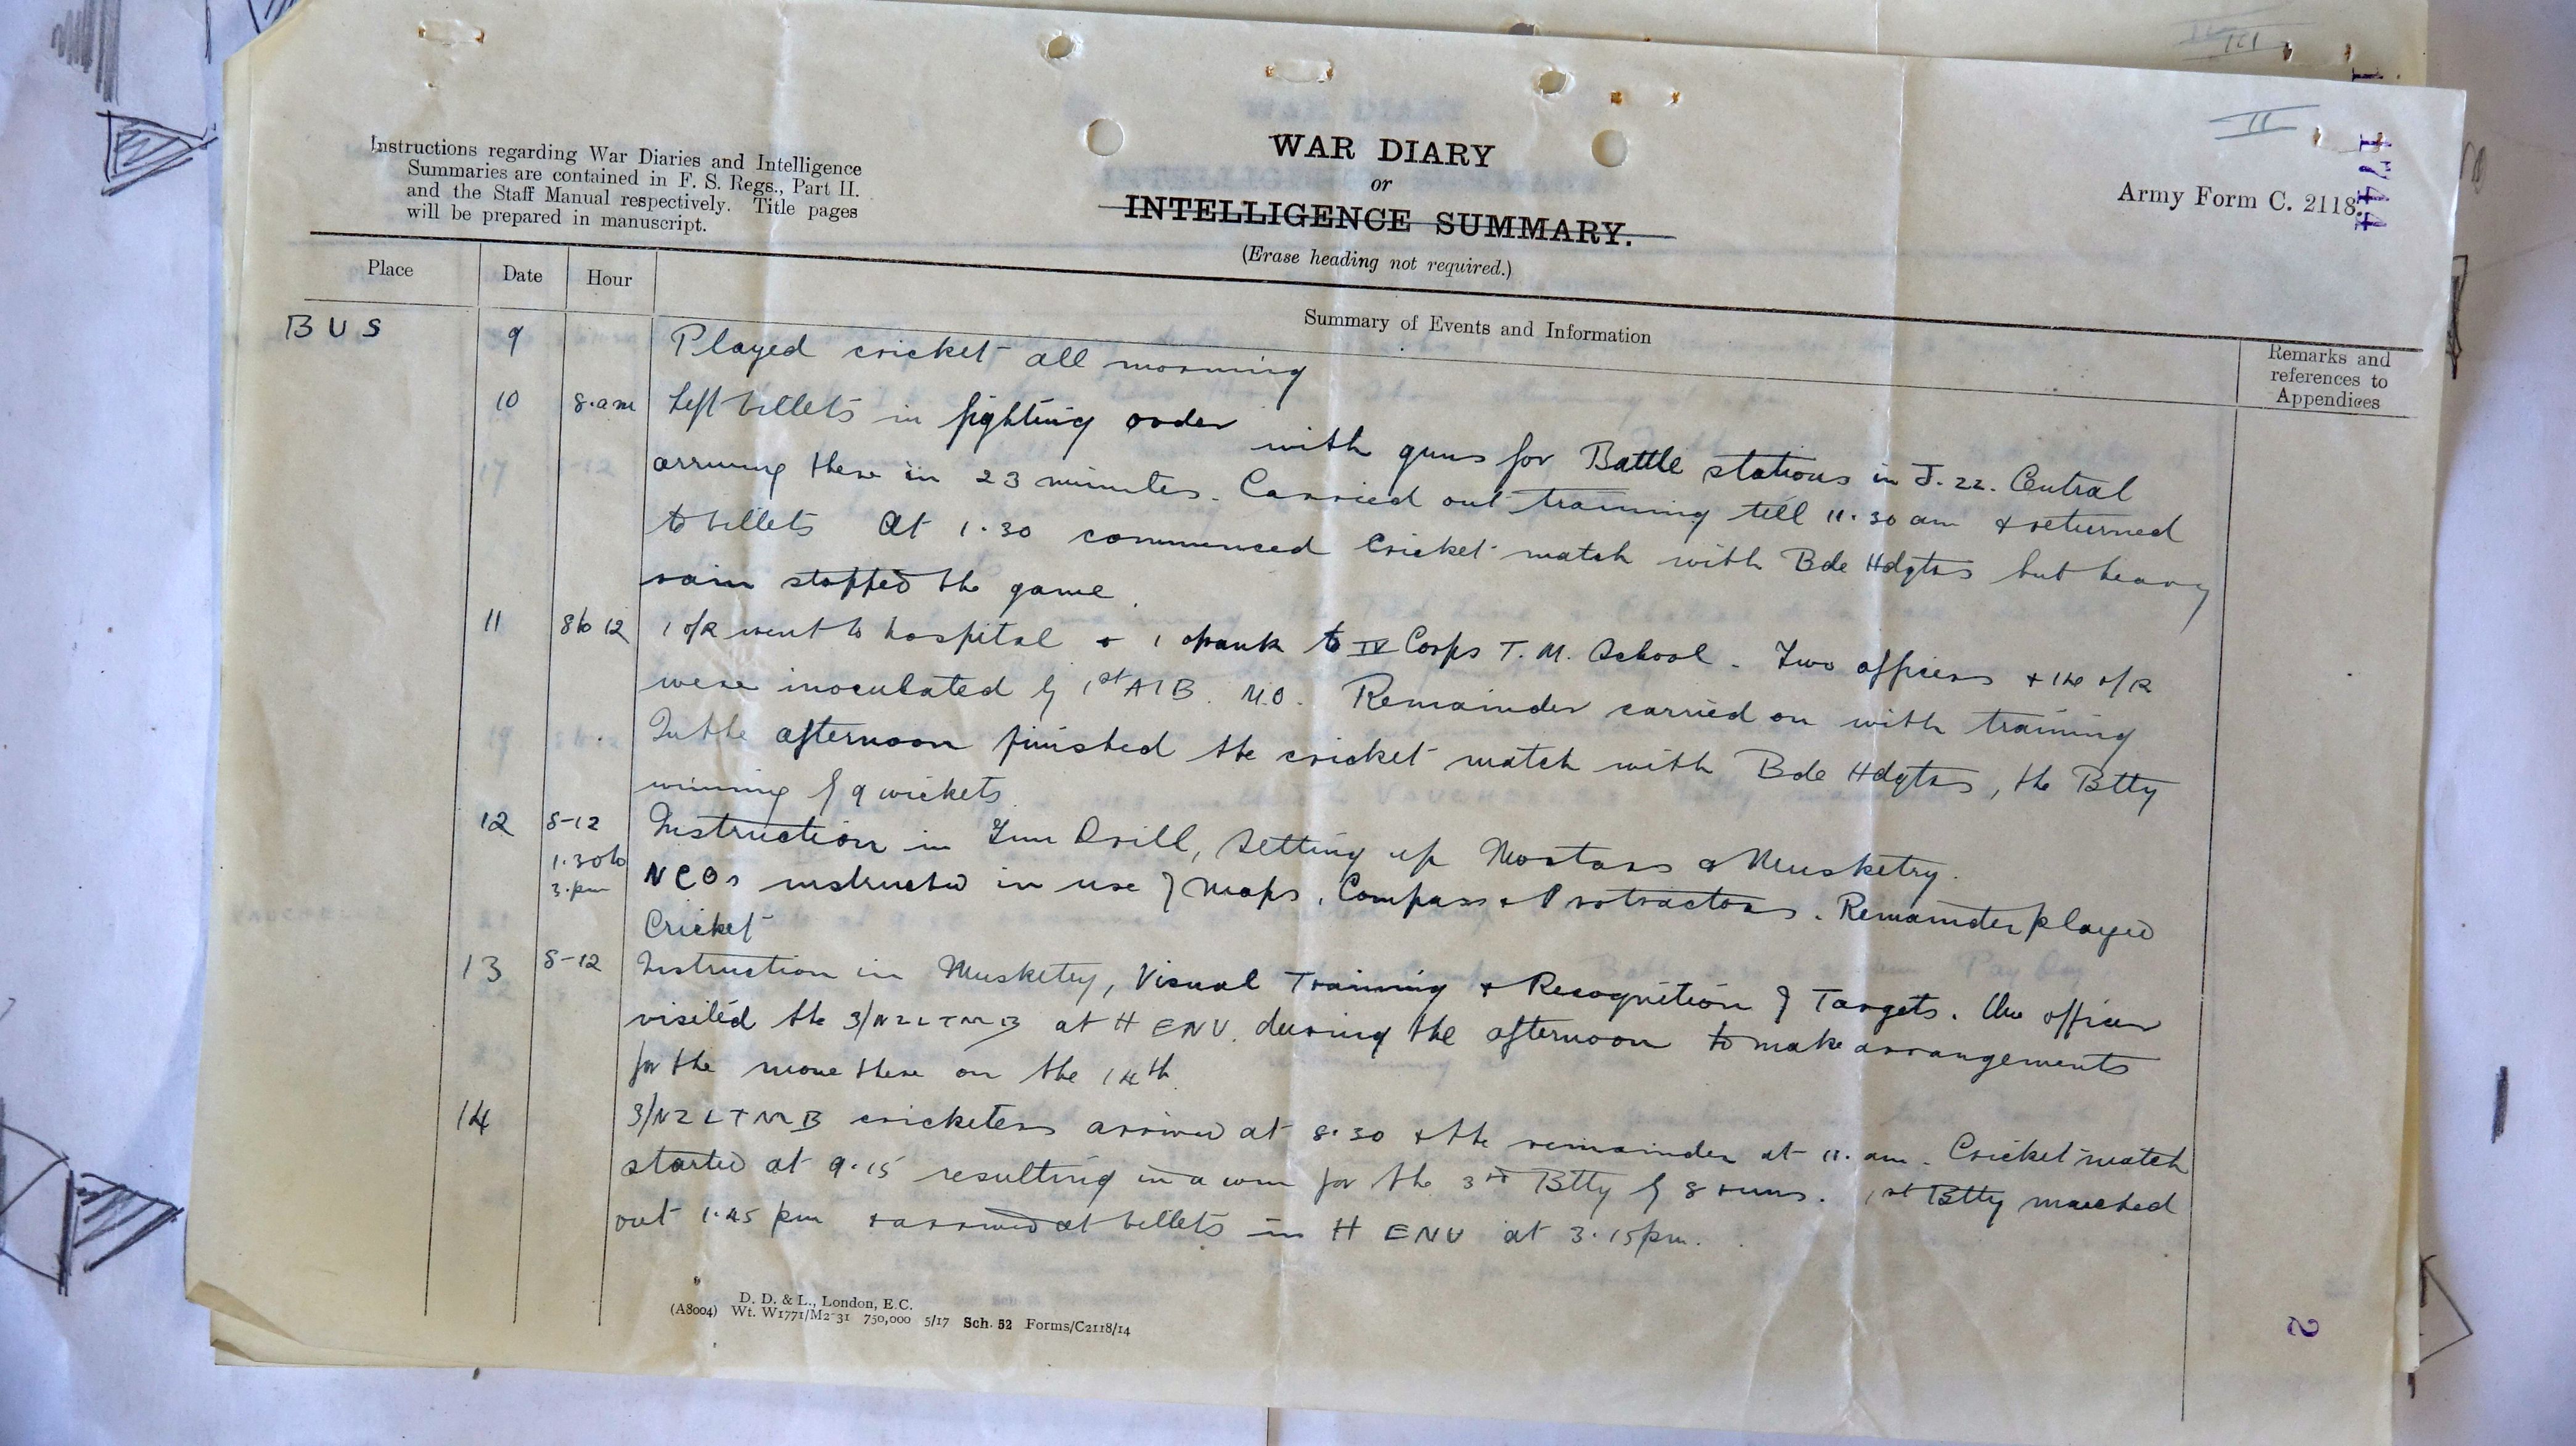 Instructions regarding War Diaries and Intelligence
Summaries are contained in F. S. Regs., Part II.
and the Staff Manual respectively. Title pages
will be prepared in manuscript.
WAR DIARY
or
INTELLIGENCE SUMMARY.
(Erase heading not required.)
II
Army Form C. 2118.
Place Date Hour Summary of Events and Information Remarks and
references to
Appendices
BUS 9 Played cricket all morning
10 8.am Left billets in fighting order with guns for Battle stations in J.22. Central
arriving there in 23 minutes. Carried out training till 11.30 am & returned
to billets At 1.30 commenced Cricket match with Bde Hdqtrs but heavy
rain stopped the game.
11 8 to 12 1 o/R went to hospital & 1 o/rank to IV Corps T. M. School. Two officers & 14 o/R
were inoculated by 1st A I B. M.O. Remainder carried on with training
In the afternoon finished the cricket match with Bde Hdqtrs, the Btty
winning by 9 wickets.
12 8-12 Instruction in Gun Drill, Setting up Mortars & Musketry.
1.30 to 3.pm NCOs instructed in use of Maps, Compass & Protractors. Remainder played
Cricket
13 8-12 Instruction in Musketry, Visual Training & Recognition of Targets. One officer
visited the 3/NZLTMB at HENU. during the afternoon to make arrangements
for the move there on the 14th.
14 3/NZLTMB cricketers arrived at 8.30 & the remainder at 11.am. Cricket match
started at 9.15 resulting in a win for the 3rd Btty by 8 runs. 1st Btty marched
out 1.45 pm & arrived at billets in HENU at 3.15pm.
D. D. & L., London, E.C.
(A8004) Wt. W1771/M2-31 750,000 5/17 Sch. 52 Forms/C2118/14
2